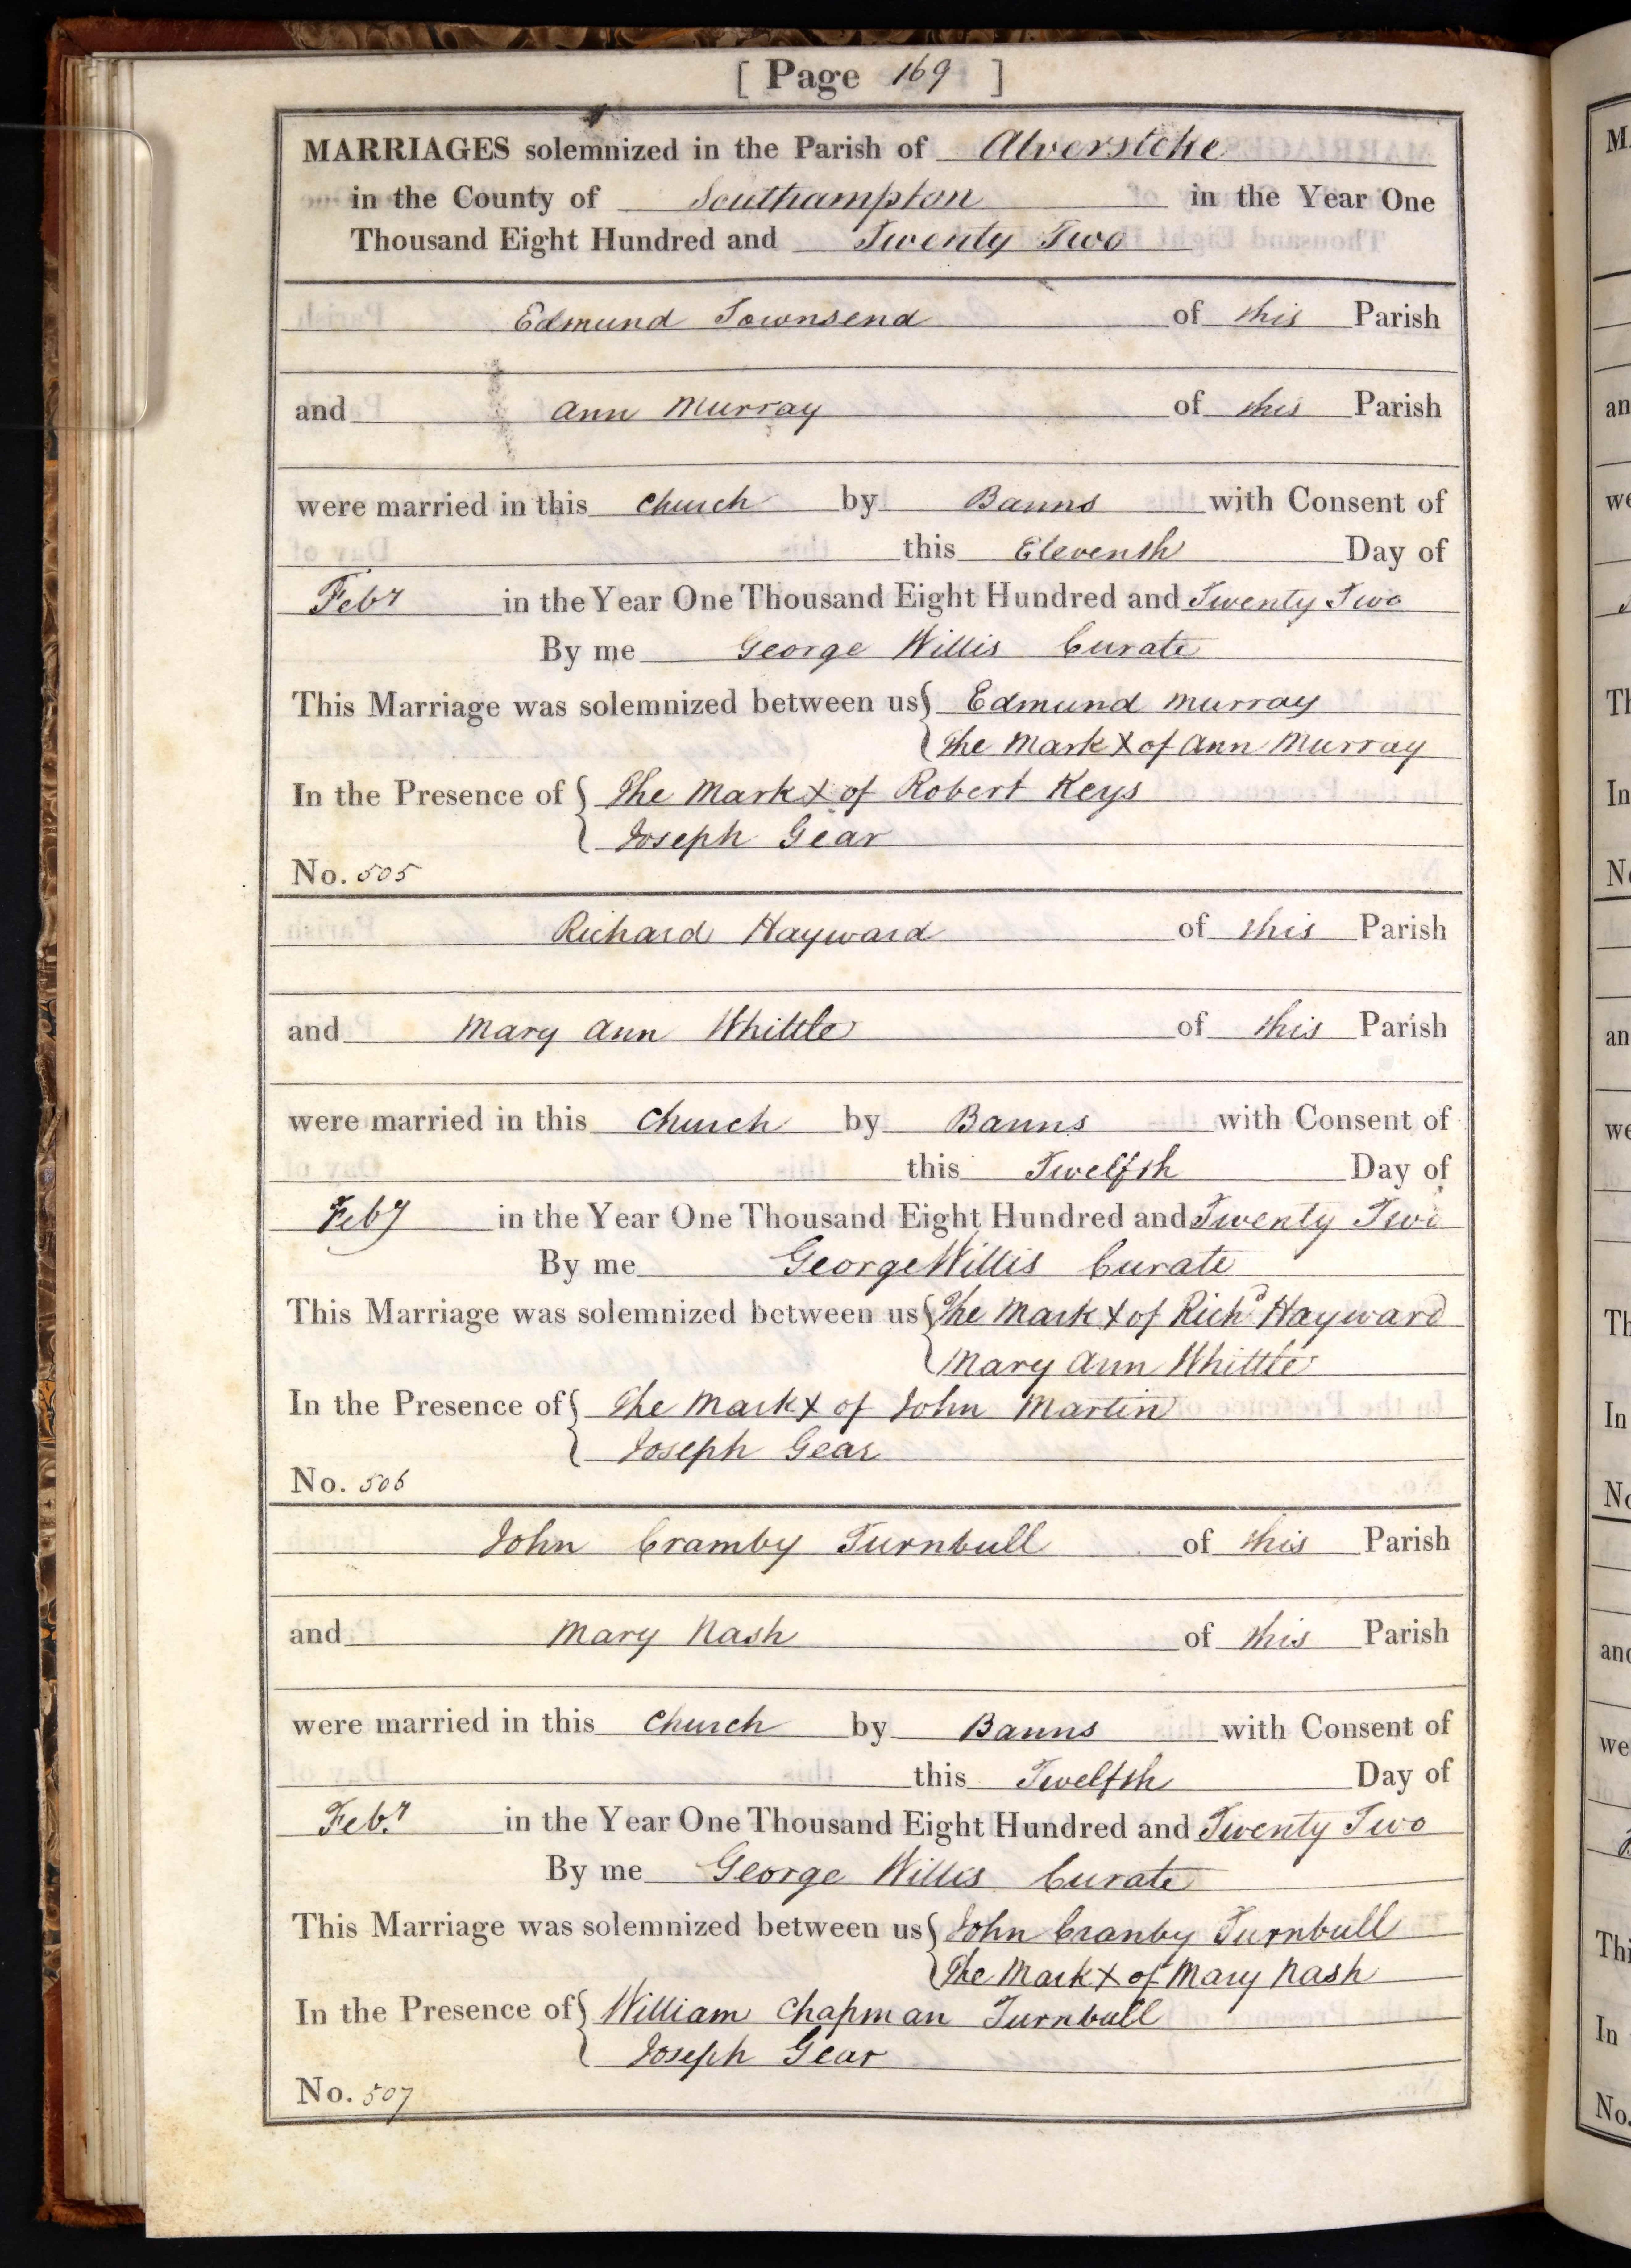 [ Page 169 ]
MARRIAGES solemnized in the Parish of Alverstoke
in the County of Southampton in the Year One
Thousand Eight Hundred and Twenty Two
Edmund Townsend of this Parish
and Ann Murray of this Parish
were married in this Church by Banns with Consent of
this Eleventh Day of
Feby in the Year One Thousand Eight Hundred and Twenty Two
By me George Willis Curate
This Marriage was solemnized between us { Edmund Murray
The Mark X of Ann Murray
In the Presence of { The Mark X of Robert Keys
Joseph Gear
No. 505
Richard Hayward of this Parish
and Mary Ann Whittle of this Parish
were married in this Church by Banns with Consent of
this Twelfth Day of
Feby in the Year One Thousand Eight Hundred and Twenty Two
By me George Willis Curate
This Marriage was solemnized between us { The Mark X of Richd Hayward
Mary Ann Whittle
In the Presence of { The Mark X of John Martin
Joseph Gear
No. 506
John Cramby Turnbull of this Parish
and Mary Nash of this Parish
were married in this Church by Banns with Consent of
this Twelfth Day of
Feby in the Year One Thousand Eight Hundred and Twenty Two
By me George Willis Curate
This Marriage was solemnized between us { John Cranby Turnbull
The Mark X of Mary Nash
In the Presence of { William Chapman Turnbull
Joseph Gear
No. 507